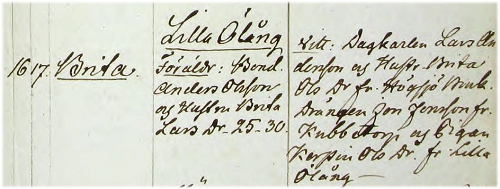 Lilla Ölång
16 17. Brita.
Föräldr: Bond.
Anders Olsson
og Hustru Brita
Lars Dr. 25-30.
Vitt: Dagkarlen Lars An
denson og Hustr. Brita
Ols Dr fr. Högsjö
Drängen Jon Jonsson fr.
Kubbetorp og Pigan
Kerstin Ols Dr. fr Lilla
Ölång